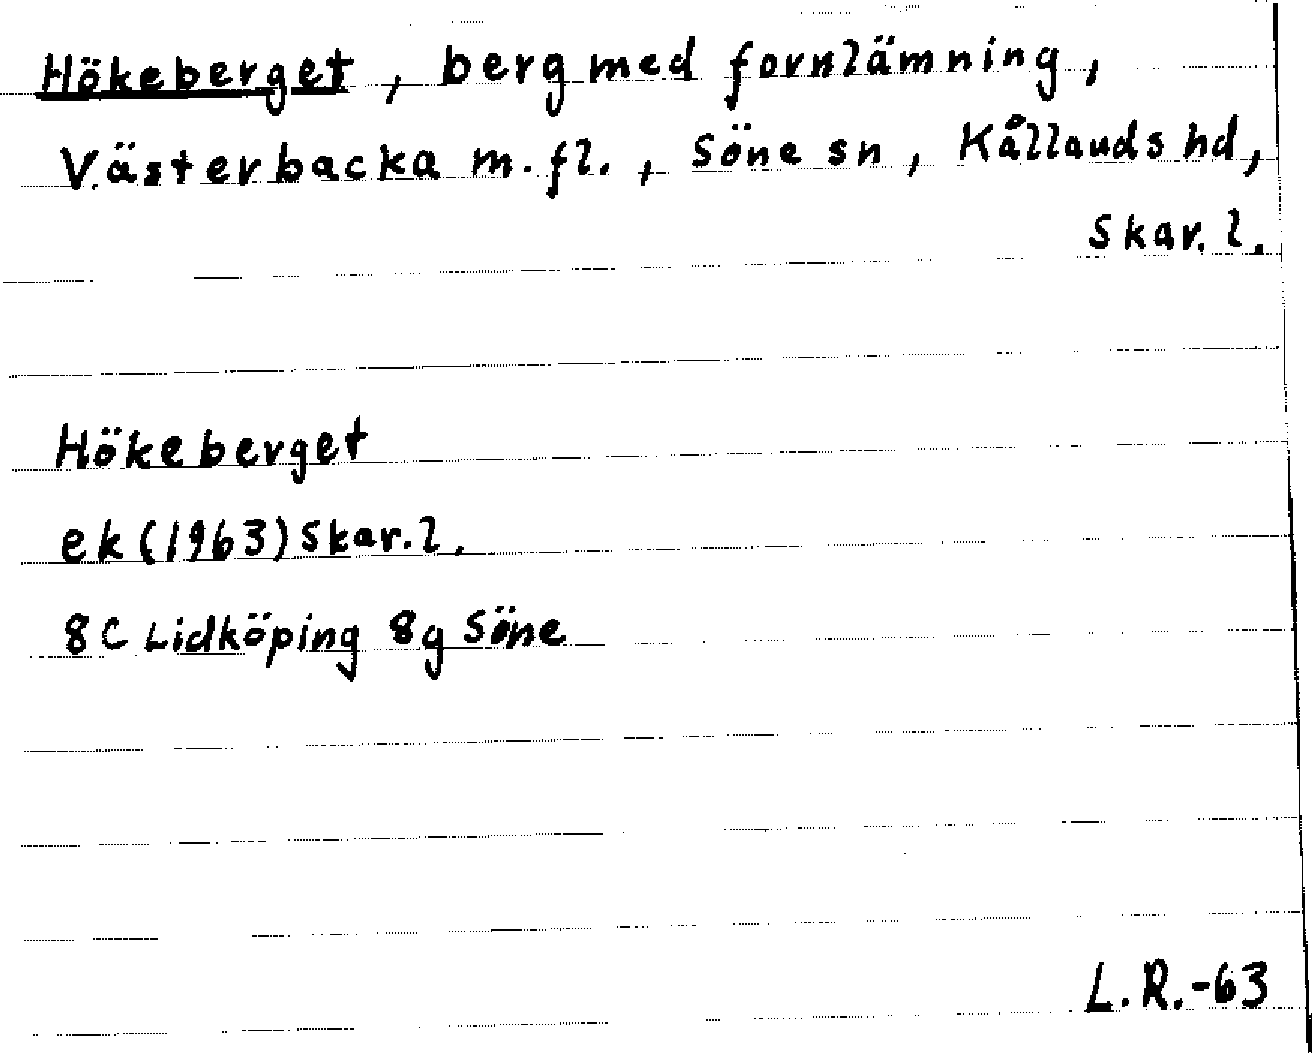 Hökeberget, berg med fornlämning,
Västerbacka m.fl., Söne sn, Kållands hd,
Skar. l.
Hökeberget
ek (1963) Skar. l.
8C Lidköping 8g Söne
L.R.-63